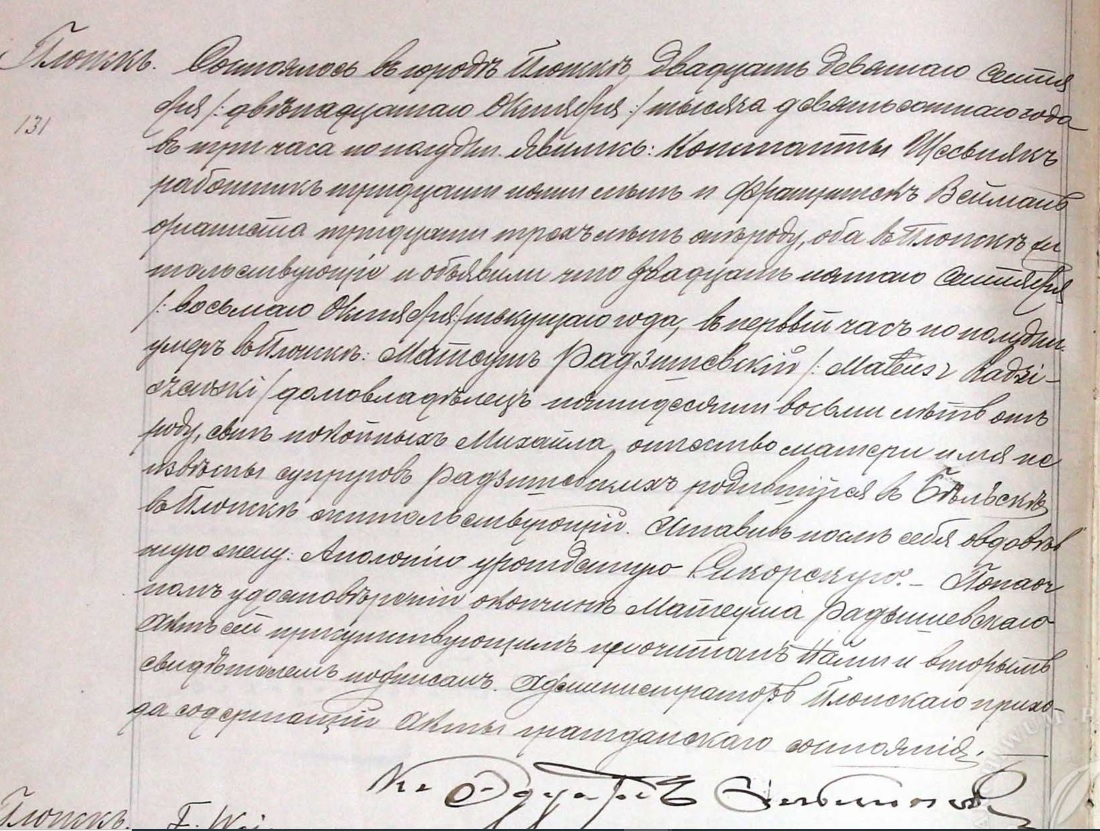 Плоцкъ.
131
Состоялось въ городѣ Плоцкѣ, двадцать девятаго Сентя
бря /: двѣнадцатаго Октября :/ тысяча девятьсотаго года
въ три часа по полудни. Явились: Константы
работникъ тридцати пяти лѣтъ и Францишекъ Вейманъ
органиста тридцати трехъ лѣтъ отъ роду, оба въ Плоцкѣ жи
тельствующіе и объявили что двадцать пятаго Сентября
/: восьмаго Октября/ текущаго года, въ первый часъ по полудни
умеръ въ Плоцкѣ: Матеушъ Радзишевскій /: Mateusz Radzi-
szewski / домовладѣлецъ пятидесяти восьми лѣтъ отъ
роду, сынъ покойныхъ Михайла, отчество матери имя не
извѣстны супруговъ Радзишевскихъ родившійся въ Бѣльскѣ
въ Плоцкѣ жительствующій. Оставивъ послѣ себя овдовѣв
шую жену: Аполонію урожденную Сикорскую. – По настоя
номъ удостовѣреніи о кончинѣ Матеуша Радзишевскаго
Актъ сей присутствующимъ прочитанъ Нами и вторымъ
свидѣтелемъ подписанъ. Администраторъ Плоцкаго прихо-
да содержащій Акты гражданскаго состоянія;
Кс Эдуардъ
Плоцкъ.
F. Wej